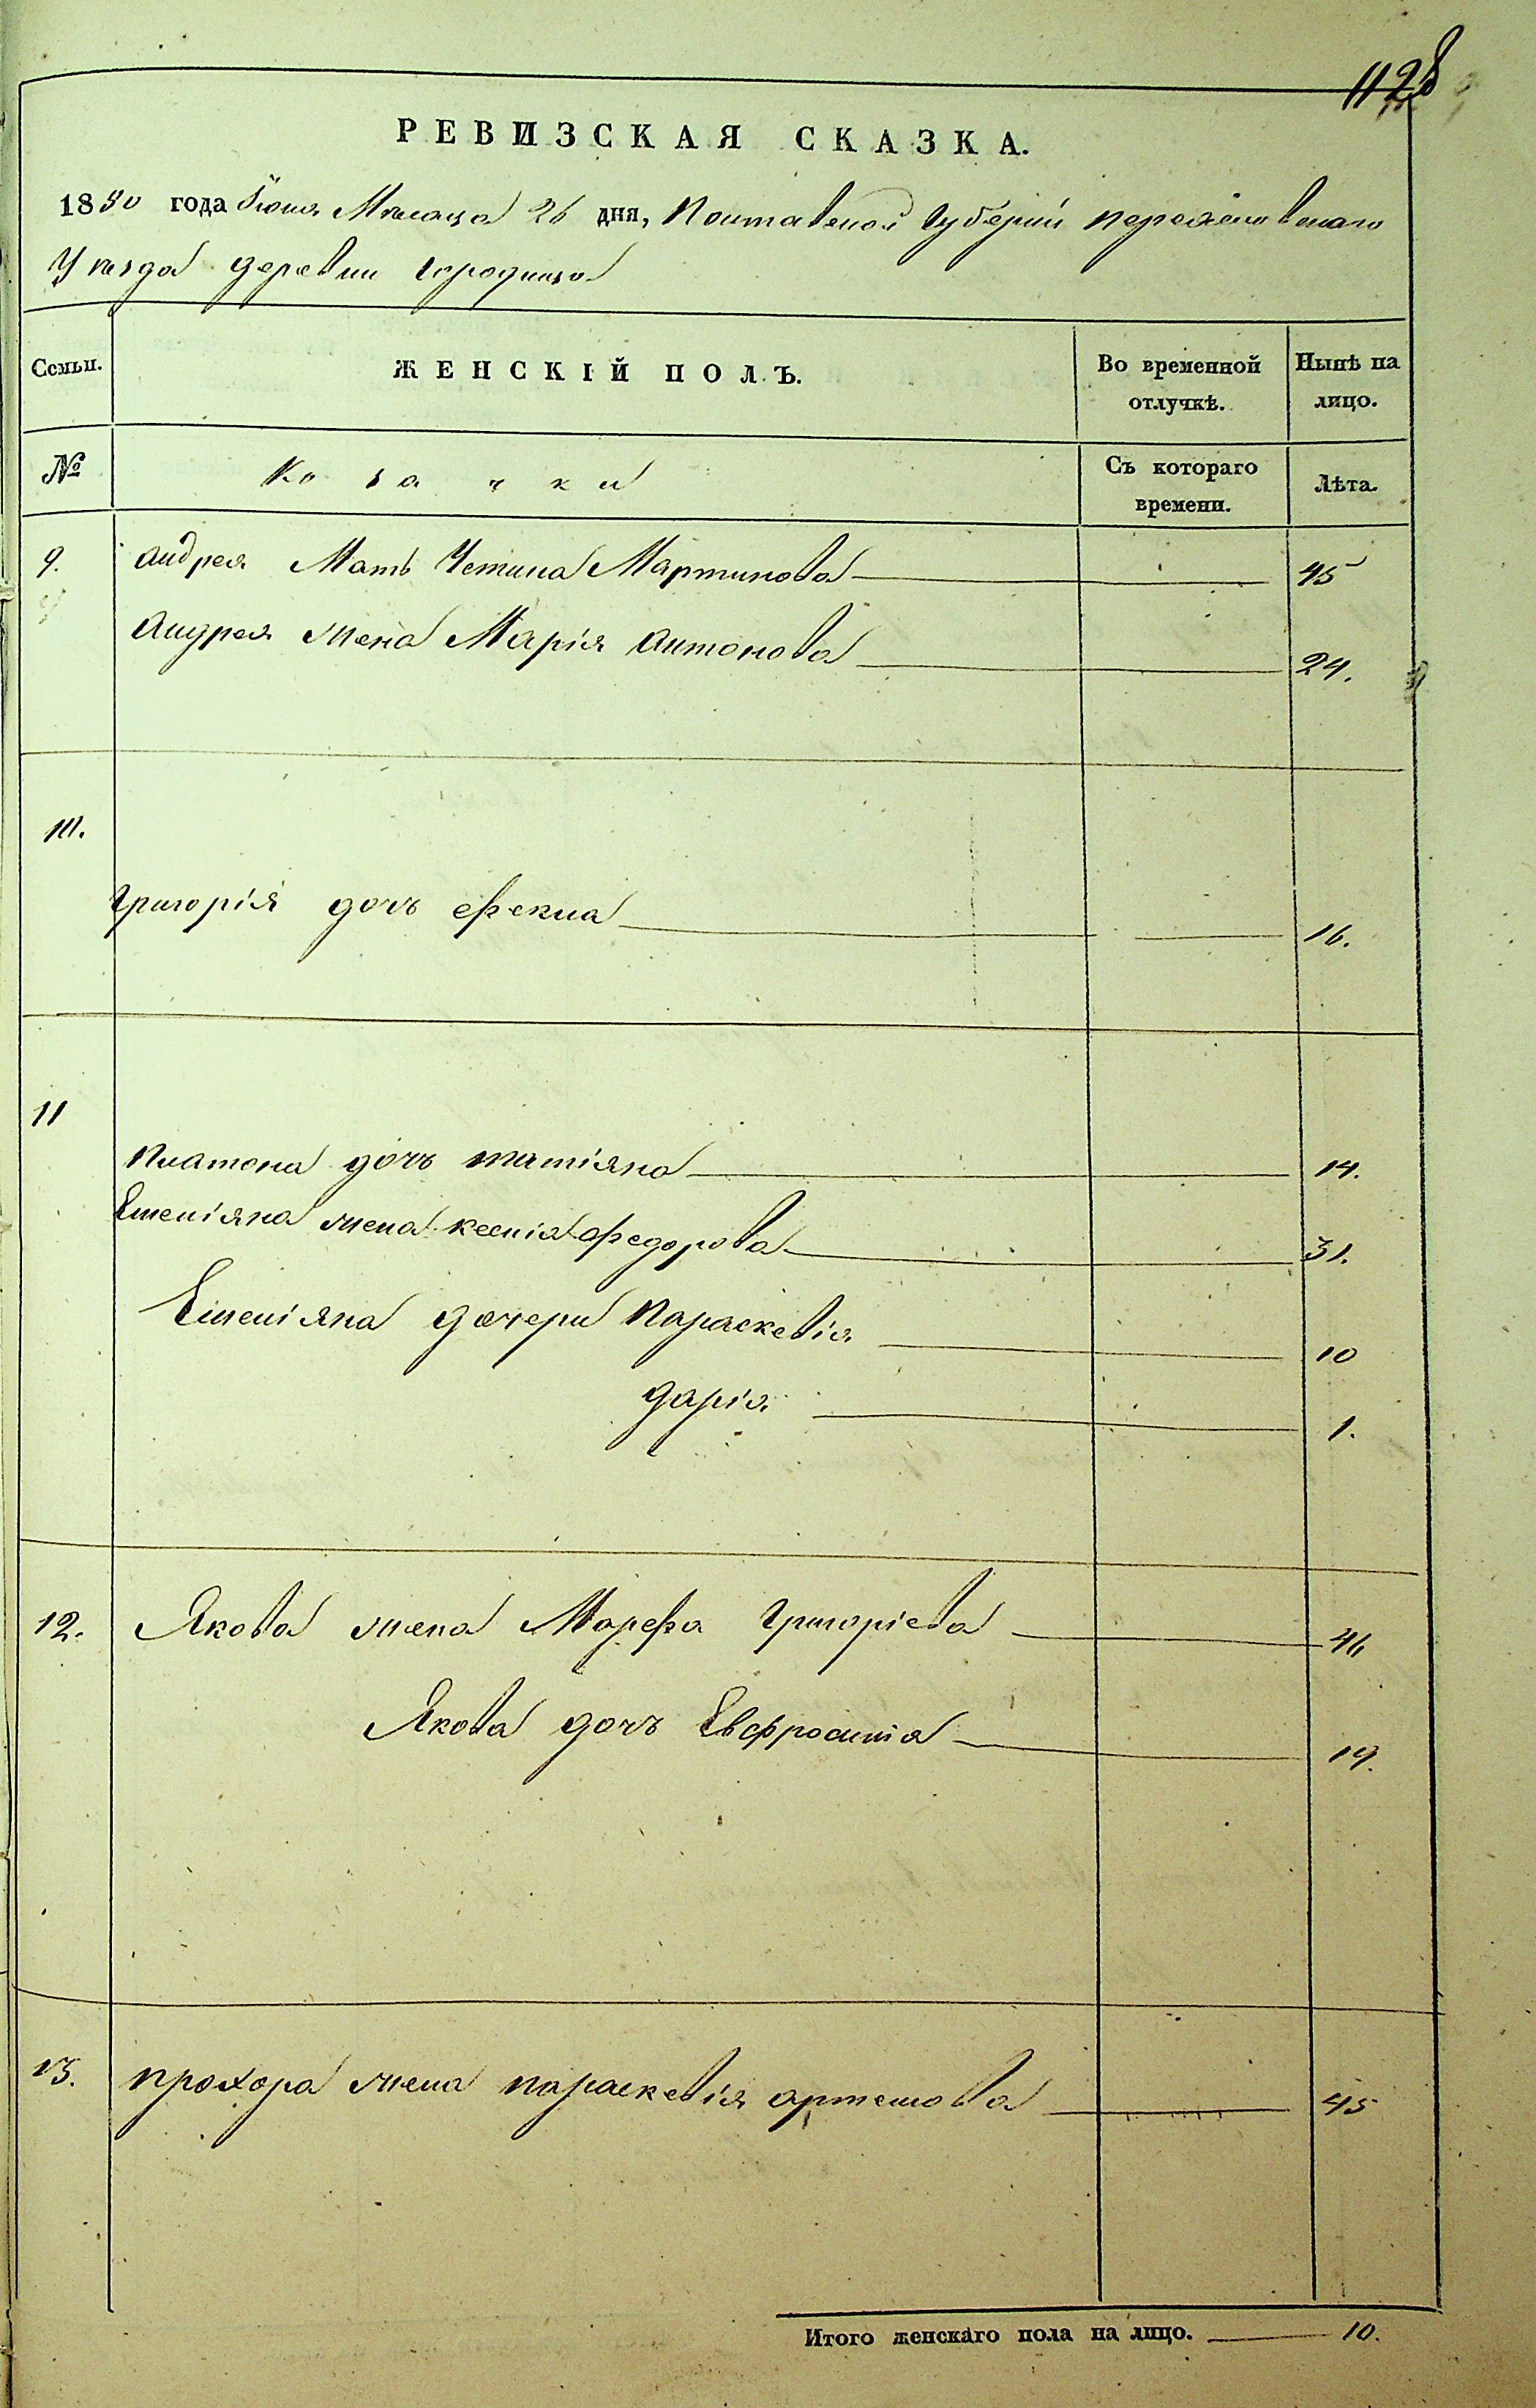 1128
РЕВИЗСКАЯ СКАЗКА.
1850 года Іюня Мѣсяца 26 дня, Полтавской Губерніи Переяславскаго
Уѣзда деревни Городища
Семьи.
ЖЕНСКІЙ ПОЛЪ.
Во временной отлучкѣ.
Нынѣ на лицо.
№
Козачки
Съ котораго времени.
Лѣта.
9. Андрея Мать Устина Мартинова 45
Андрея жена Марія Антонова 24.
10.
Григорія дочь Фекла 16.
11
Платона дочь Татіяна 14.
Емеліяна жена Ксенія Федорова 31.
Емеліяна дочери Параскевія 10
Дарія 1.
12. Якова жена Марфа Григоріева 46
Якова дочь Евфросинія 19.
13. Прохора жена Параскевія Артемова 45
Итого женскаго пола на лицо. 10.